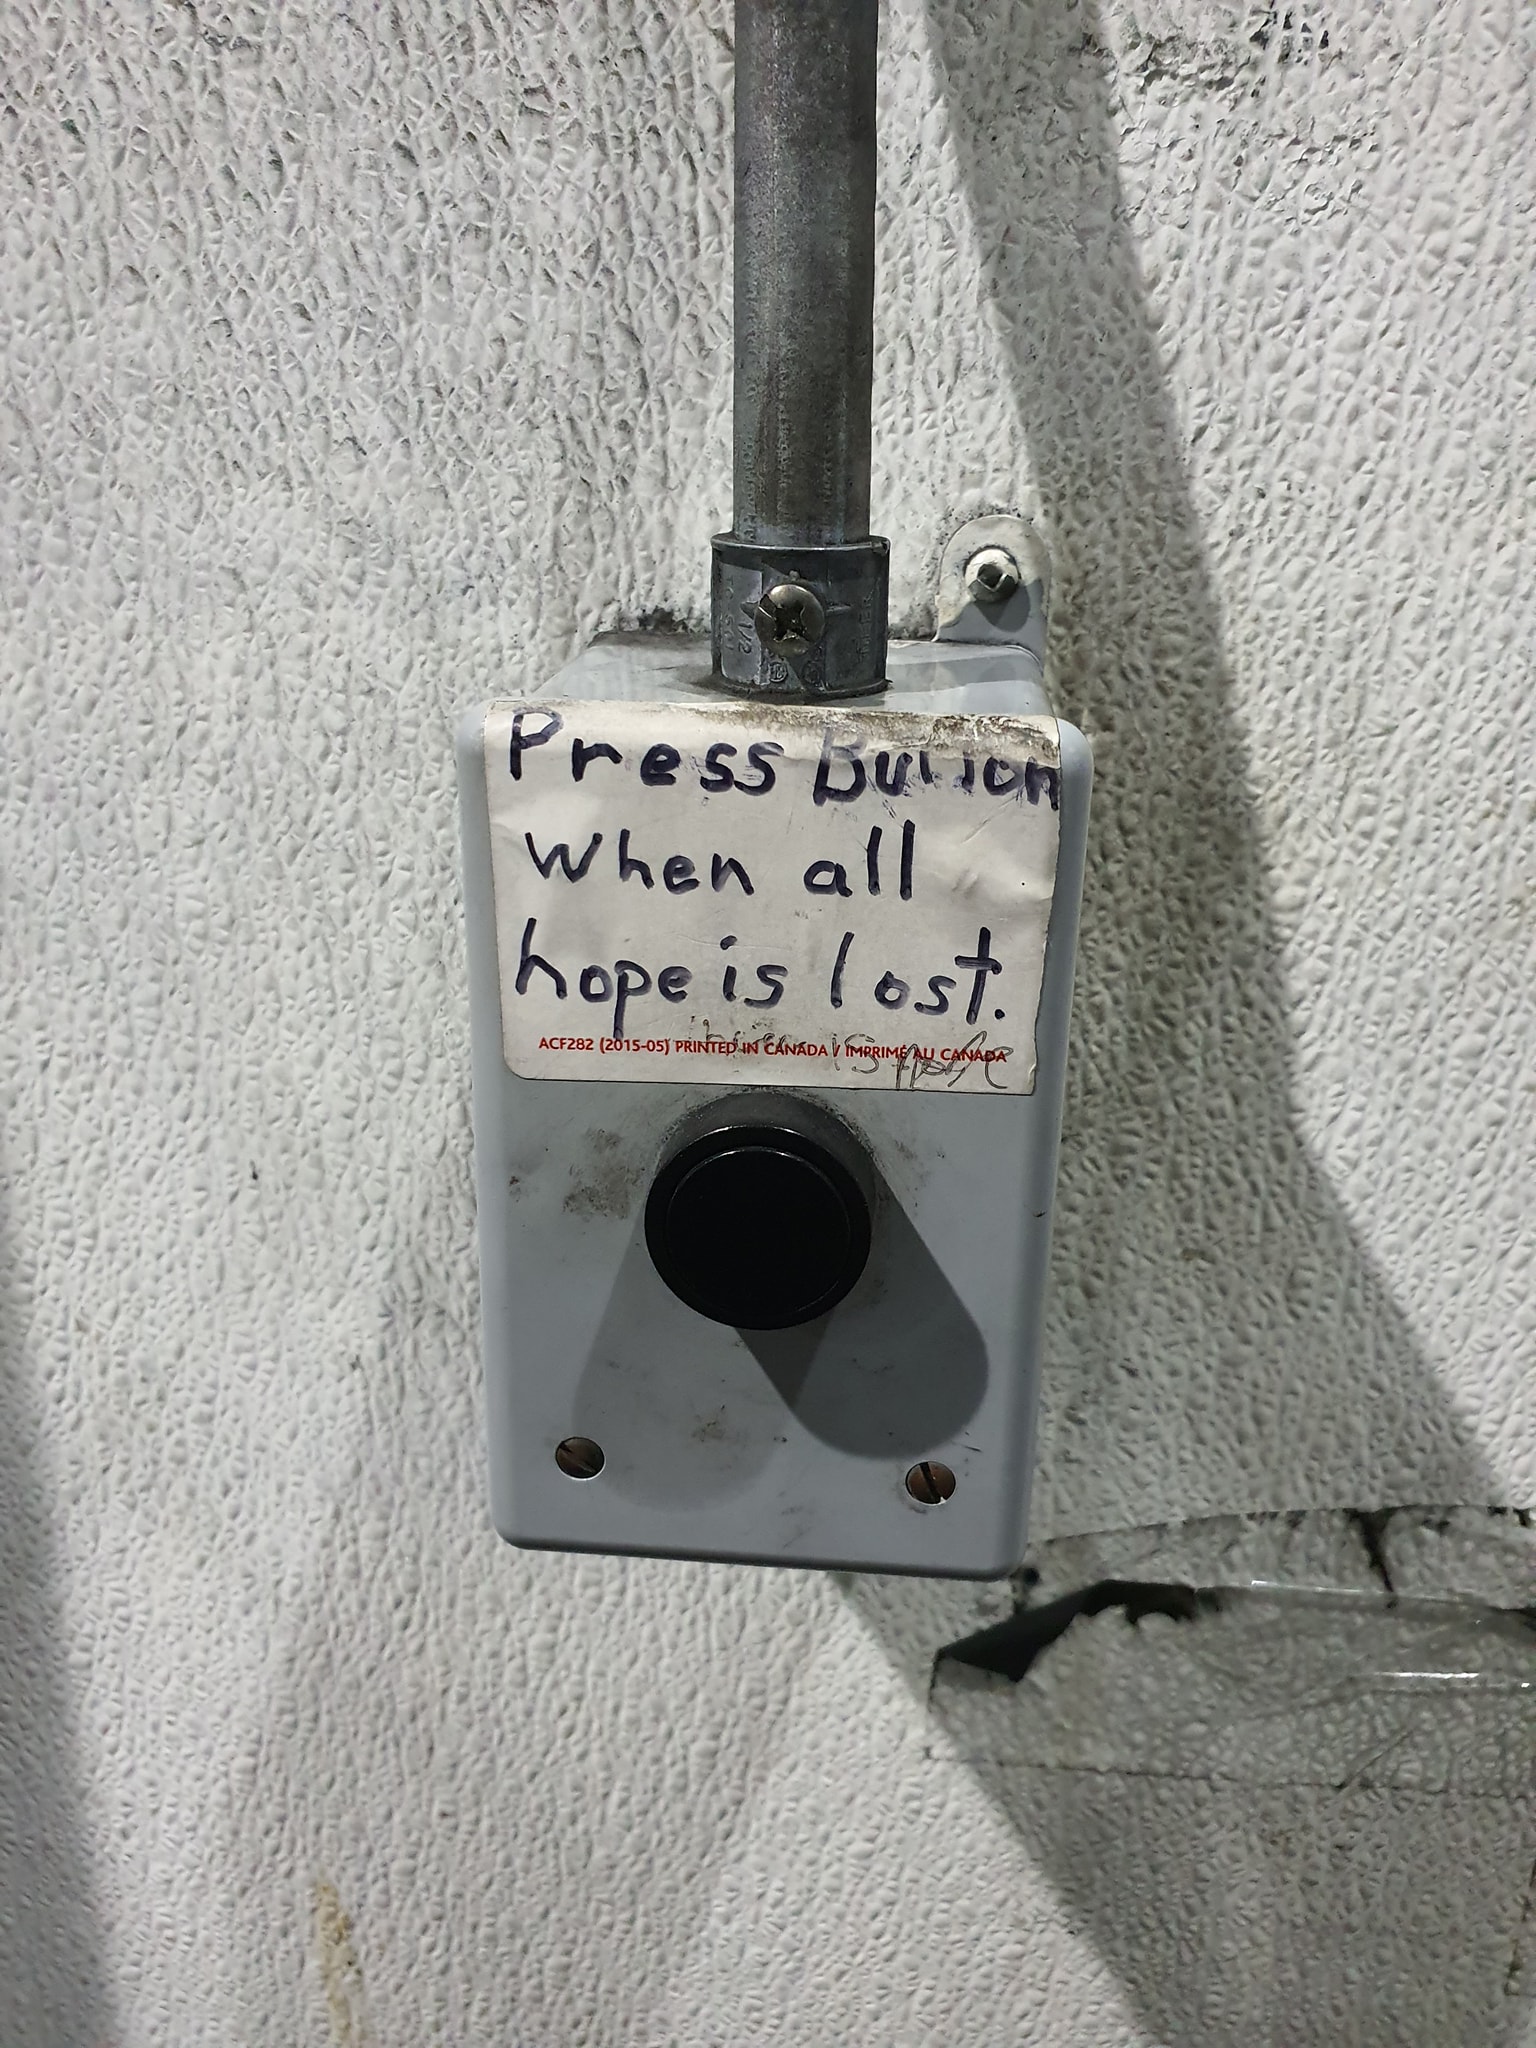 1/2
Press Button
when all
hope is lost.
ACF282 (2015-05) PRINTED IN CANADA / IMPRIMÉ AU CANADA
is